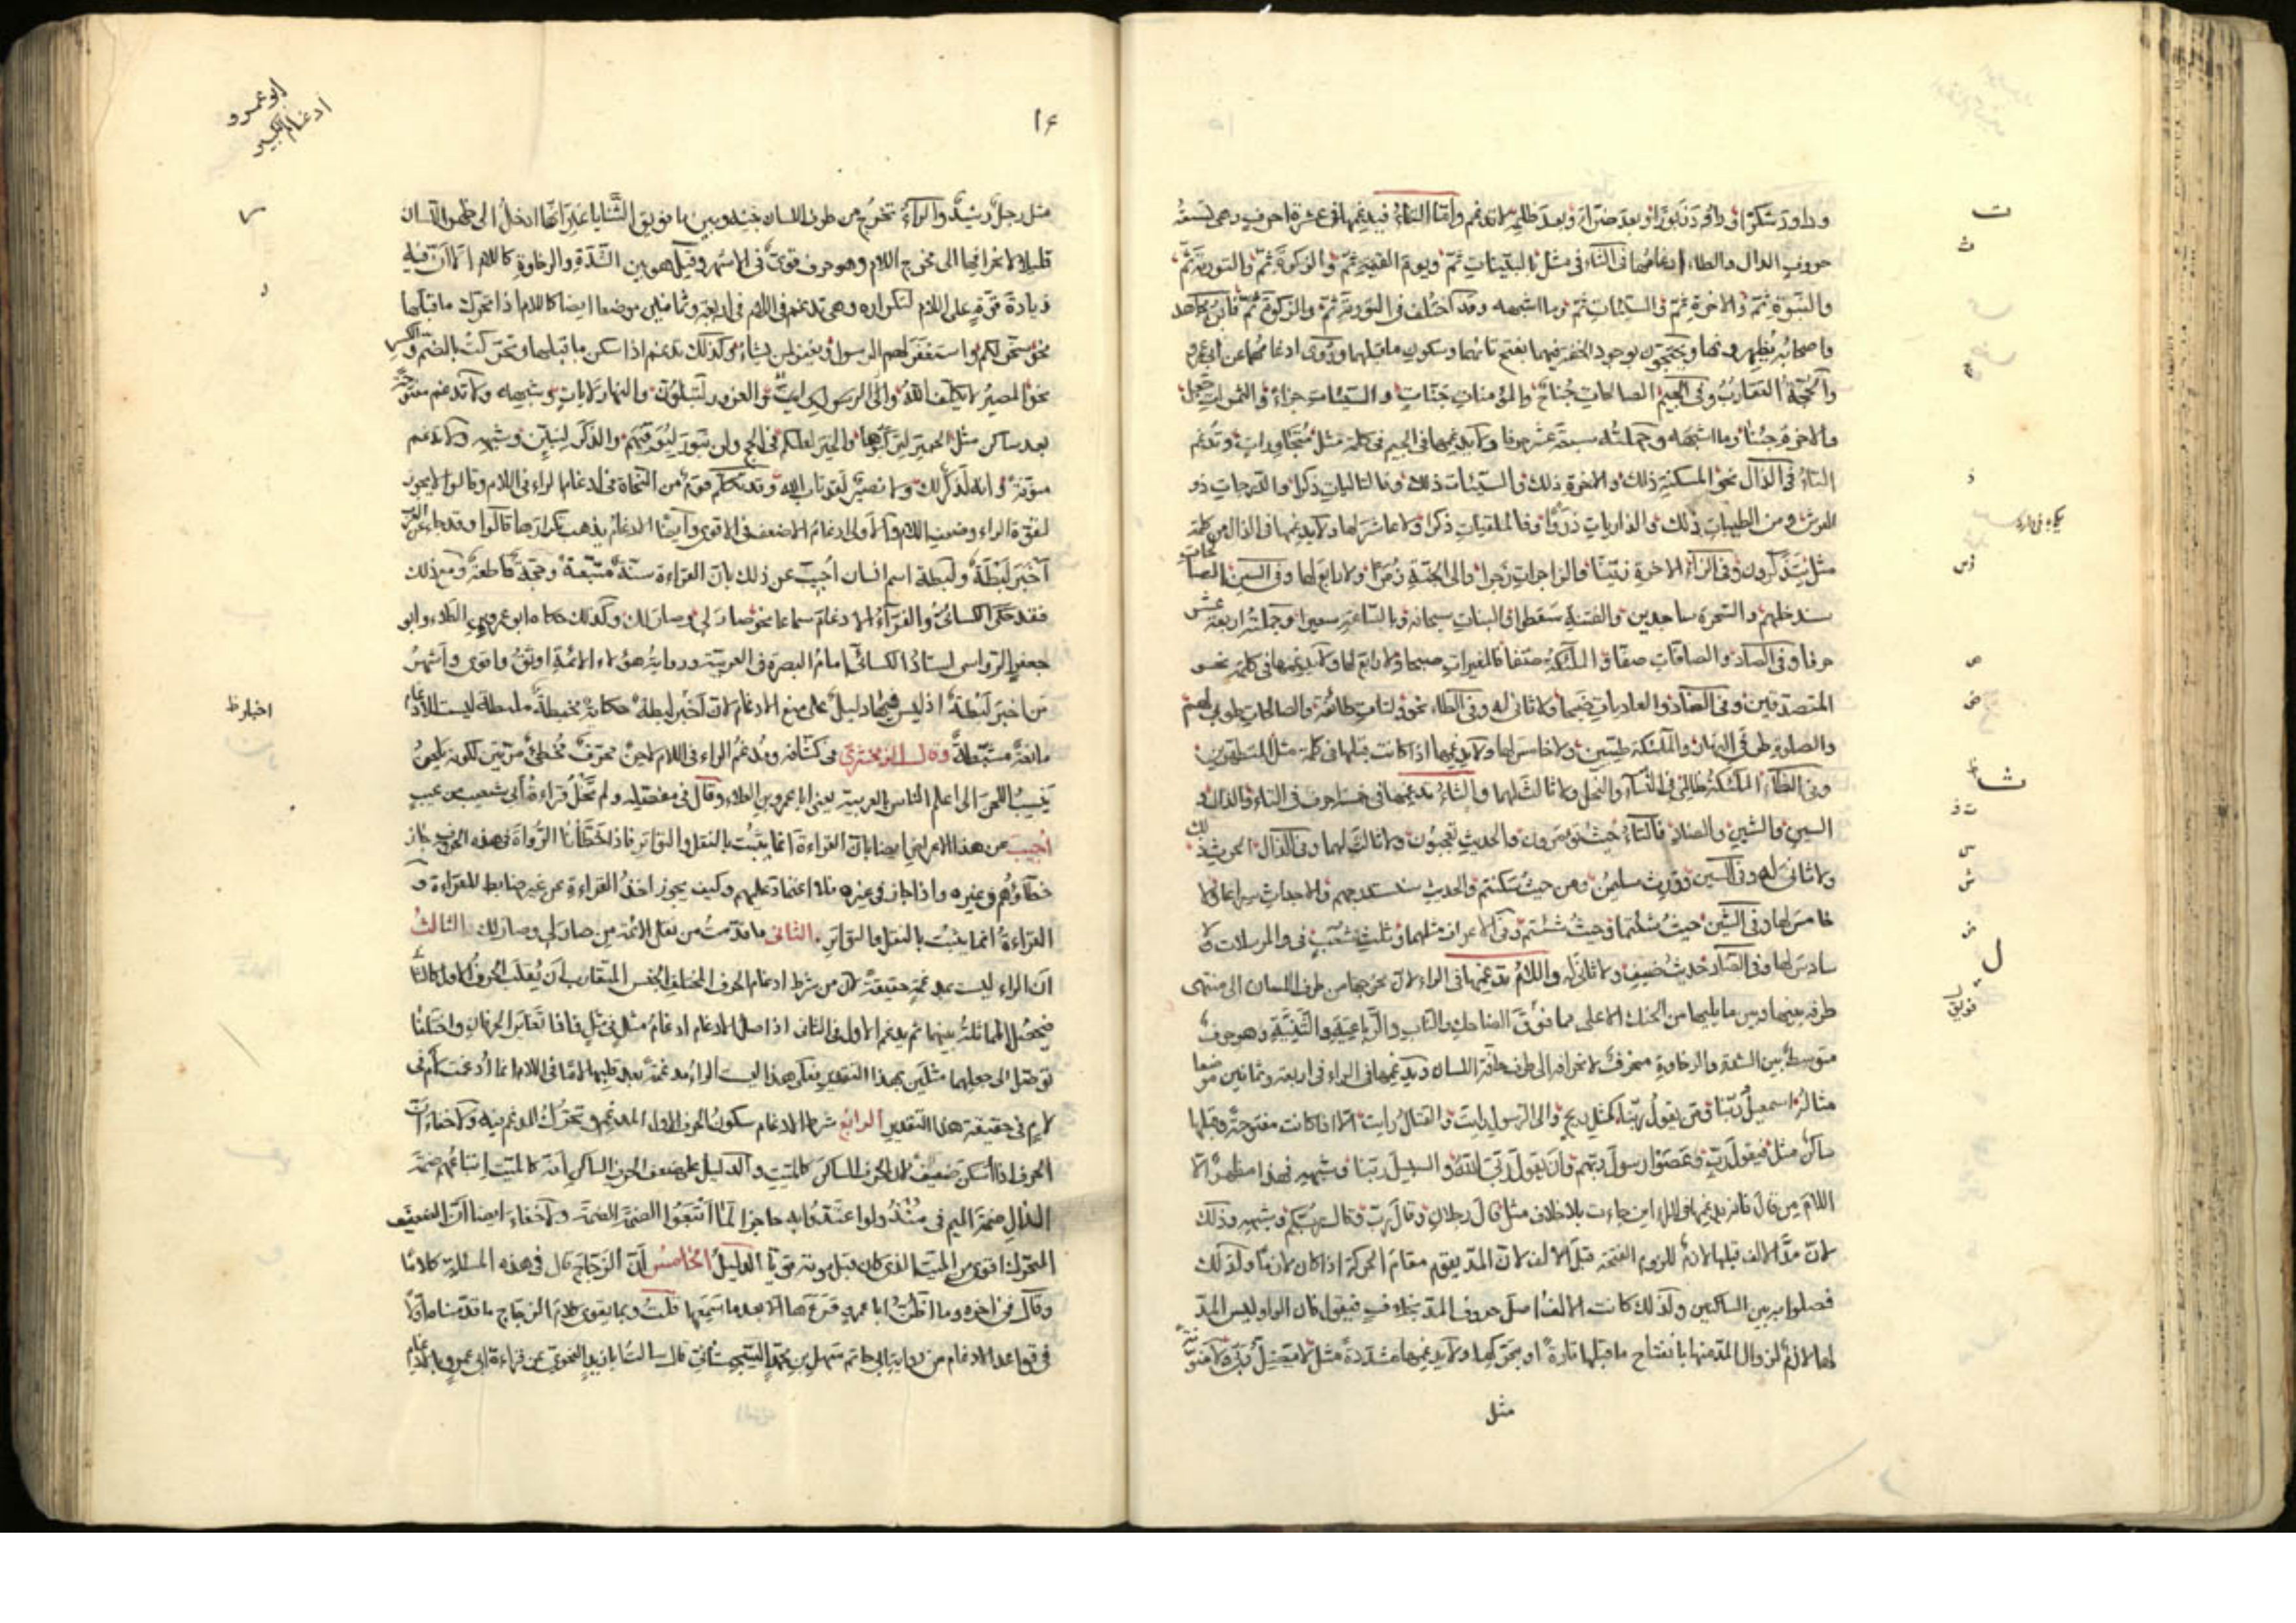 ت
وداود شكرا وداود زبورا وبعد ضراء وبعد ظلمه لا تدغم واما التاء فيدغمها في عشرة احرف وهى تسعة
ث
حروف الدال والطاء ادغامها في الثاء في مثل بالبينات ثم ويوم القيمة ثم والزكوة ثم والتورية ثم
والنبوة ثم والاخرة ثم والسيئات ثم وما اشبهه وقد اختلف في التورية ثم والزكوة ثم فابن مجاهد
واصحابه يظهرونها ويحتجون بوجود الخفة فيهما بفتح تائهما وسكون ما قبلهما وروى ادغامهما عن ابي عمرو
ج
والحجة التقارب وفي الجيم الصالحات جناح والمؤمنات جنات والسيئات جزاء والثمرات جعل
والاخرة جئنا وما اشبهه وجملته سبعة عشر حرفا ولا يدغمها في الجيم في كلمة مثل متجاورات وتدغم
ذ
التاء في الذال نحو المسكنة ذلك والاخرة ذلك والسيئات ذلك فالتاليات ذكرا والدرجات ذو
العرش ومن الطيبات ذلك والذاريات ذروا فالملقيات ذكرا ولا عاشر لها ولا يدغمها في الذال من كلمة
ز س
مثل يتذكرون وفي الزاء الاخرة زينا فالزاجرات زجرا والى الجنة زمرا ولا رابع لها وفي السين الصالحات
سندخلهم والسحرة ساجدين والفتنة سقطوا البنات سبحانه وبالساعة سعيرا وجملته اربعة عشر
ص
حرفا وفي الصاد والصافات صفا والملئكة صفا فالمغيرات صبحا ولا رابع لها ولا يدغمها في كلمة نحو
ض
المتصدقين وفي الضاد والعاديات ضبحا ولا ثاني له وفي الطاء نحو ولتأت طائفة والصالحات طوبى لهم
والصلوة طرفي النهار والملئكة طيبين ولا خامس لها ولا يدغمها اذا كانت قبلها في كلمة مثل المتطهرين
ظ
ث
وفي الظاء الملئكة ظالمي في النساء والنحل ولا ثالث لهما والثاء يدغمها في خمسة احرف في التاء والذال و
ت ذ
السين والشين والضاد فالتاء حيث تؤمرون والحديث تعجبون ولا ثالث لهما وفي الذال الحرث ذلك
س
ولا ثاني له وفي السين وورث سليمن ومن حيث سكنتم والحديث سنستدرجهم والاجداث سراعا ولا
ش
خامس لها وفي الشين حيث شئتما وحيث شئتم وفي الاعراف مثلهما وثلث شعب في والمرسلات ولا
ض
ل
سادس لها وفي الضاد حديث ضيف ولا ثاني له واللام يدغمها في الراء لان مخرجها من طرف اللسان الى منتهى
فويق
طرفه بينها وبين ما يليها من الحنك الاعلى مما فوق الضاحك والناب والرباعية والثنية وهو حرف
متوسط بين الشدة والرخاوة منحرف لانحرافه الى طرف حافة اللسان ويدغمها في الراء في اربعة وثمانين موضعا
مثاله اسمعيل ربنا ومن يقول ربنا كمثل ريح والى الرسول رايت والقتال رايت الا اذا كانت مفتوحة وقبلها
ساكن مثل فيقول رب وعصوا رسول ربهم وان يقول ربي الله والسبيل ربنا وشبهه فهذا مظهر الا
اللام من قال فانه يدغمها في الراء اين جاءت بلا خلاف مثل قال رجلان وقال رب وقال ربكم وشبهه وذلك
لان مد الالف قبلها لازم للزوم الفتحة قبل الالف لان المد يقوم مقام الحركة اذا كان لازما ولذلك
فصلوا به بين الساكنين ولذلك كانت الالف اصل حروف المد بخلاف فيقول فان الواو ليس المد
لها لازم لزوال المد منها بانفتاح ما قبلها تارة او بتحركها ولا يدغمها مشددة مثل ولا منونة
مثل
ابو عمرو
ادغام الكبير
١٤
مثل رجل رشيد والراء تخرج من طرف اللسان بينه وبين ما فويق الثنايا غير انها ادخل الى ظهر اللسان
قليلا لانحرافها الى مخرج اللام وهو حرف قوى في الاشهر وقيل هو بين الشدة والرخاوة كاللام الا ان فيه
زيادة قوة على اللام لتكراره وهى تدغم في اللام في اربعة وثمانين موضعا ايضا كاللام اذا تحرك ما قبلها
نحو سخر لكم واستغفر لهم الرسول ويغفر لمن يشاء وكذلك تدغم اذا سكن ما قبلها وتحركت بالضم والكسر
نحو المصير لا يكلف الله والنهار لايات وشبهه ولا تدغم مفتوحة
بعد ساكن مثل الحمير لتركبوها والخير لعلكم في الحج ولن تبور ليوفيهم والذكر لتبين وشبهه ولا تدغم
منونة وانه لذكر لك ولا نصير لقد تاب الله وقد تكلم قوم من النحاة في ادغام الراء في اللام وقالوا لا يجوز
لقوة الراء وضعف اللام والاولى ادغام الاضعف في الاقوى وايضا الادغام يذهب تكرارها قالوا وقد جاء عن العرب
اخبر لبطة ولبطة اسم انسان اجيب عن ذلك بان القراءة سنة متبعة وحجة قاطعة ومع ذلك
فقد حكى الكسائي والفراء الادغام سماعا نحو صار لي وصار لك وكذلك حكاه ابو عمرو بن العلاء وابو
جعفر الرواسي استاذ الكسائي امام البصرة في العربية ورواية هؤلاء الائمة اوثق واقوى واشهر
اخبار ظ
من اخبر لبطة اذ ليس فيها دليل على منع الادغام لان اخبر لبطة حكاية لبطة ليست للادغام
مانعة مثبطة وقال الزمخشري في كشافه ومدغم الراء في اللام لاحن محرف مخطئ مرتين لكونه يلحن
ينسب اللحن الى اعلم الناس بالعربية يعني ابا عمرو بن العلاء وقال في مفصله ولم تخل قراءة ابي شعيب من عيب
اجيب عن هذا الاعراض ايضا بان القراءة انما يثبت بالنقل والتواتر فاذا اخطأنا الرواة في هذه الحروف جاز
خطاؤهم في غيره واذا جاز في غيره فلا اعتماد عليهم وكيف يجوز اخذ القراءة عن غير ضابط للقراءة و
القراءة انما يثبت بالنقل والتواتر الثاني ما قدمت من نقل الائمة من صار لي وصار لك الثالث
ان الراء ليست مدغمة حقيقة لان من شرط ادغام الحرف المختلف الجنس المتقارب ان يقلب الحرف الاول كالثاني
فيحصل المماثلة بينهما ثم يدغم الاول في الثاني اذ اصل الادغام ادغام مثل في مثل فاذا تغاير الحرفان واختلفا
توصل الى جعلهما مثلين بهذا التقدير فعلى هذا ليست الراء مدغمة بعد قلبها لاما في اللام انما ادغمت لام في
لام في حقيقة هذا التقدير الرابع شرط الادغام سكون الحرف الاول المدغم وتحرك المدغم فيه ولا خفاء ان
الحرف اذا اسكن ضعيف لان الحرف الساكن كالميت والدليل على ضعف الحرف الساكن انه كالميت اتباعهم ضمة
الدال ضمة الميم في منذ ولو اعتد وا به حاجزا لما اتبعوا الضمة الضمة ولا خفاء ايضا ان الضعيف
المتحرك اقوى من الميت الذى كان قبل موته قويا الدليل الخامس ان الزجاج قال في هذه المسئلة كلاما
وقال في اخره وما اظن ابا عمرو قرء بها الا بعد ما سمعها قلت ومما يقوى كلام الزجاج ما قدمناه اولا
في قواعد الادغام من رواية ابي حاتم سهل بن محمد السجستاني قال سالت ابا زيد النحوي عن قراءة ابي عمرو بالادغام